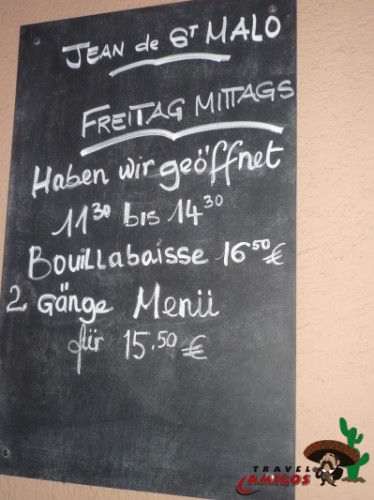 JEAN de ST MALO
FREITAG MITTAGS
Haben wir geöffnet
11³⁰ bis 14³⁰
Bouillabaisse 16⁵⁰ €
2 Gänge Menü
für 15.⁵⁰ €
TRAVEL
AMIGOS